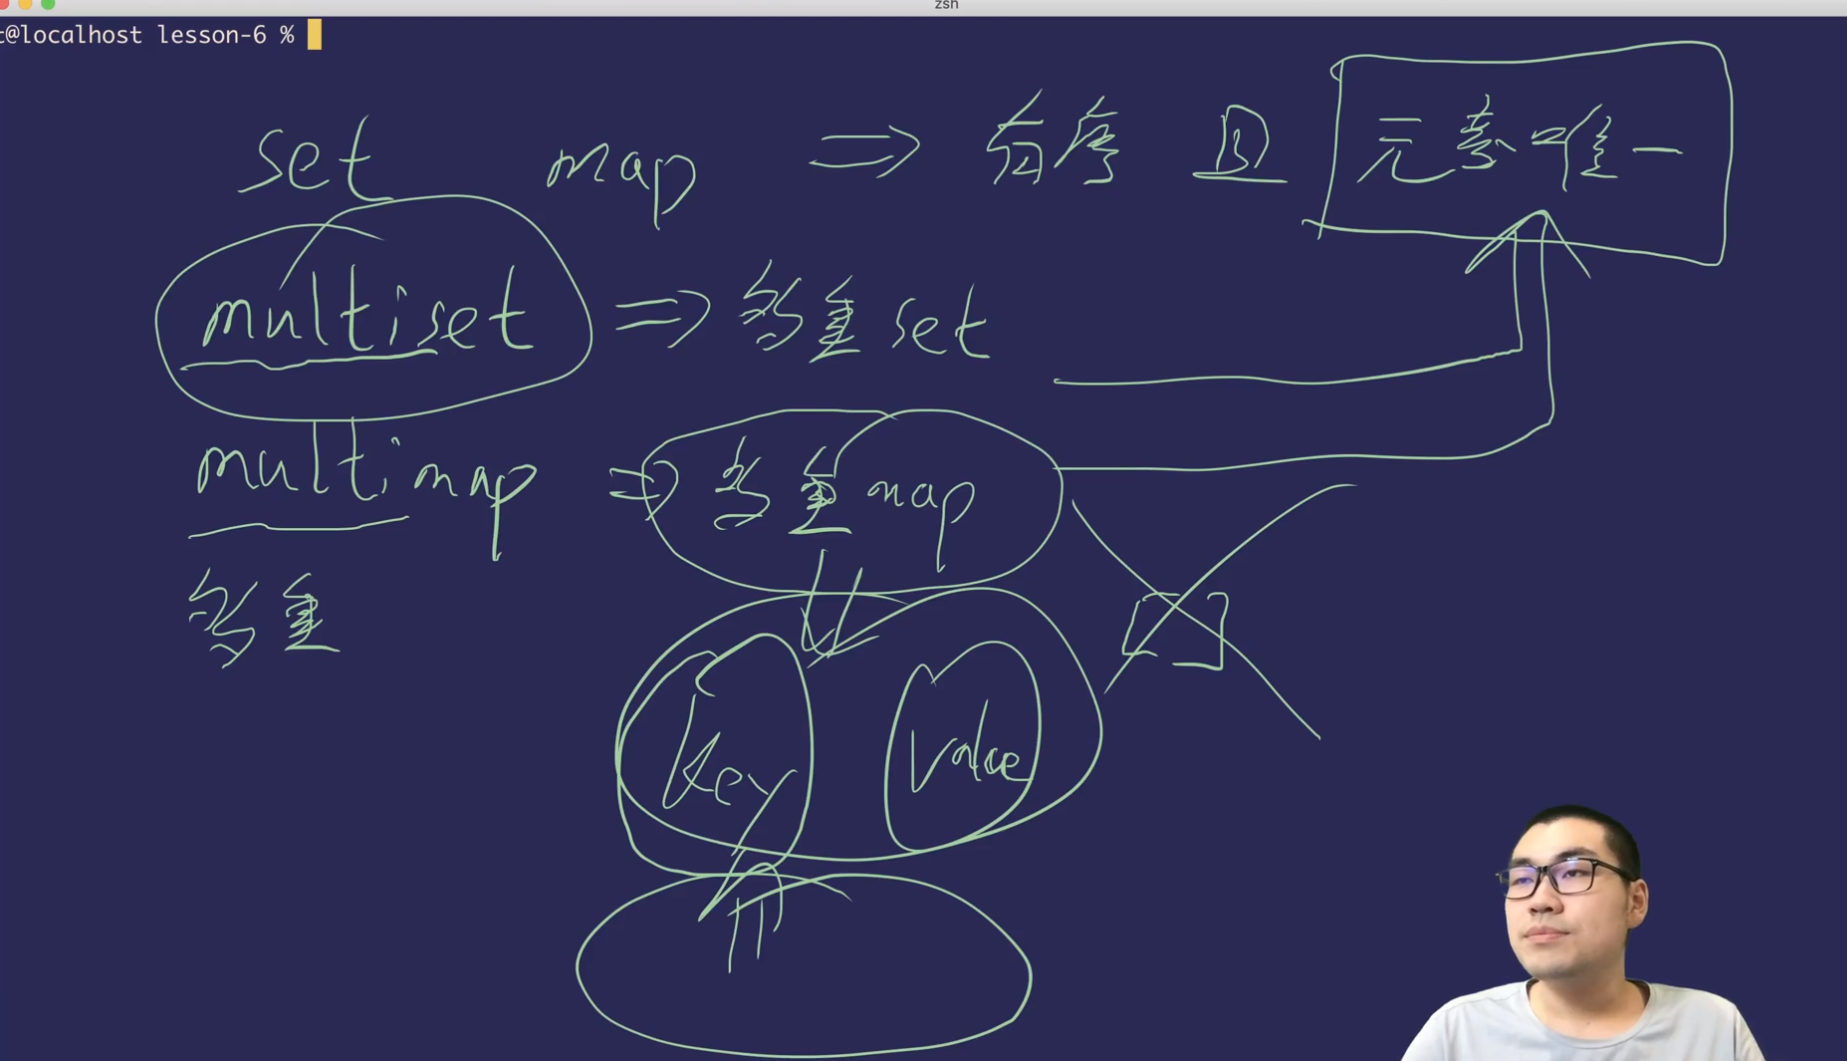 zsh
t@localhost lesson-6 %
set map ⇒ 有序 且 元素唯一
multiset ⇒ 多重set
multimap ⇒ 多重map
多重
[ ]
key value